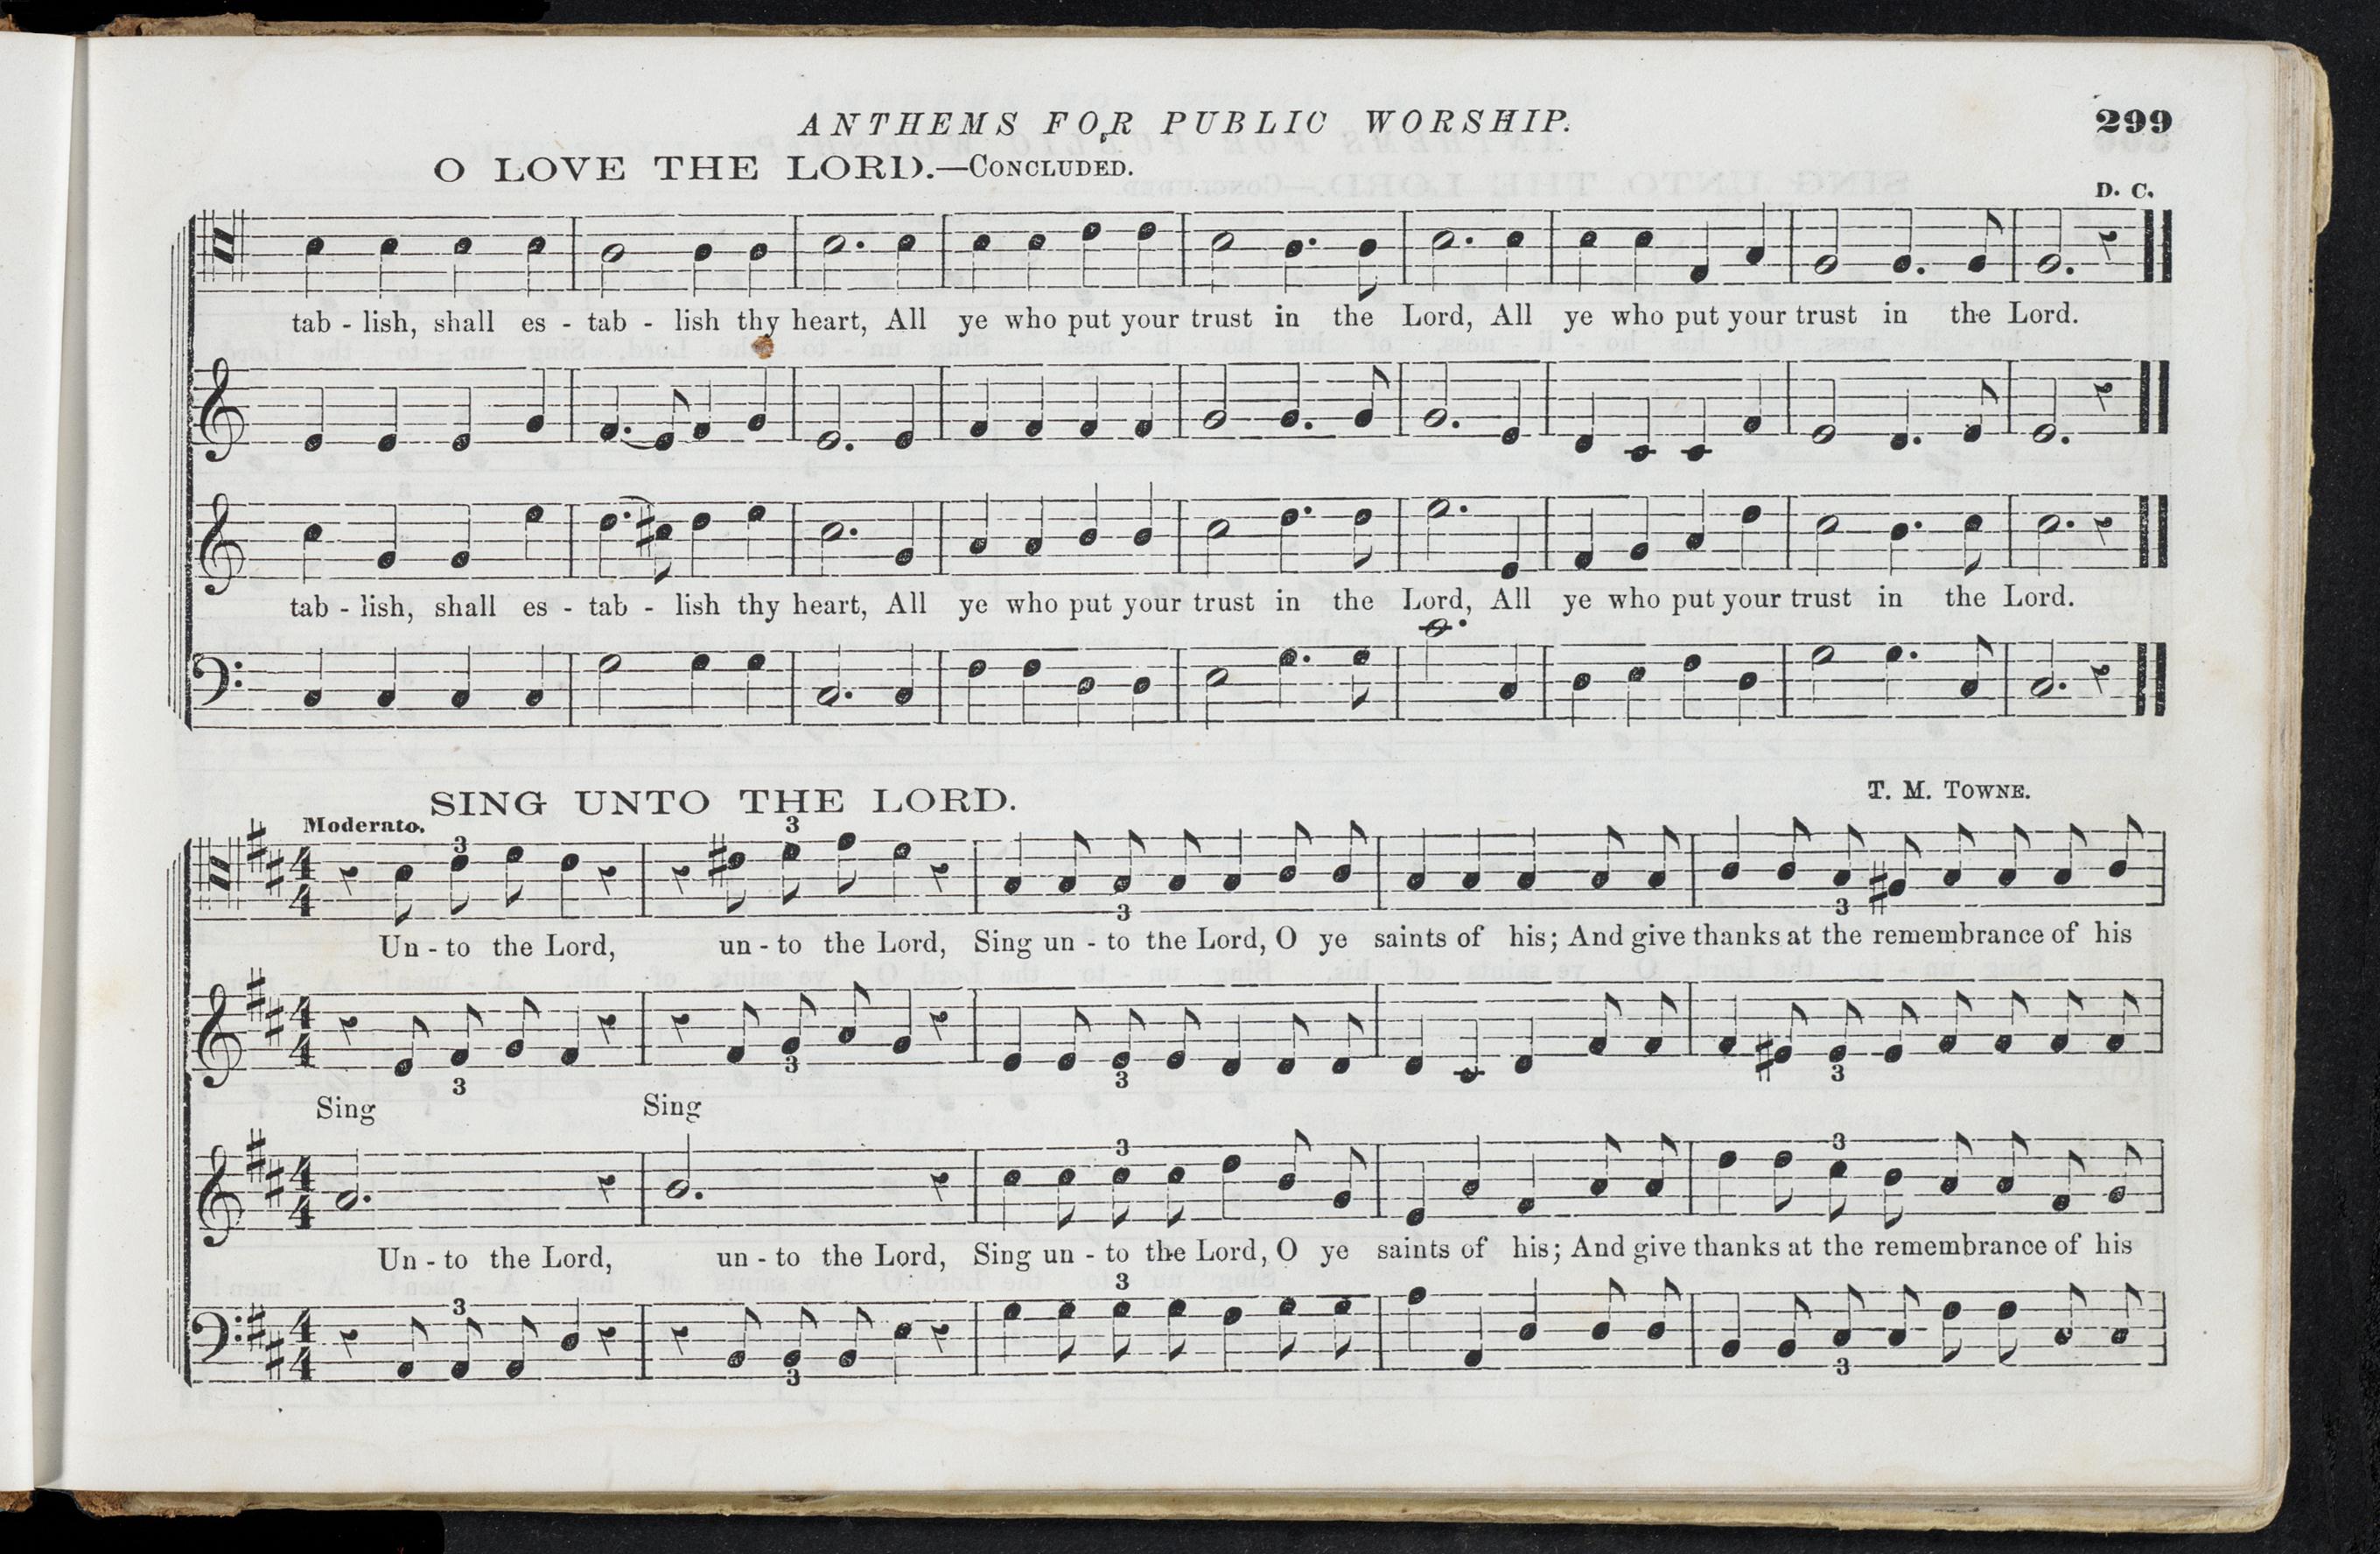 ANTHEMS FOR PUBLIC WORSHIP. 299
O LOVE THE LORD.—CONCLUDED.
D. C.
tab - lish, shall es - tab - lish thy heart, All ye who put your trust in the Lord, All ye who put your trust in the Lord.
tab - lish, shall es - tab - lish thy heart, All ye who put your trust in the Lord, All ye who put your trust in the Lord.
SING UNTO THE LORD. T. M. TOWNE.
Moderato.
3 3
4
4
3 3
Un - to the Lord, un - to the Lord, Sing un - to the Lord, O ye saints of his; And give thanks at the remembrance of his
4
4
3 3 3 3
Sing Sing
3 3
4
4
Un - to the Lord, un - to the Lord, Sing un - to the Lord, O ye saints of his; And give thanks at the remembrance of his
3 3
4
4
3 3